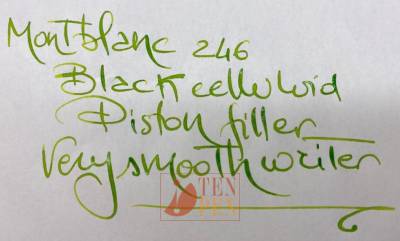 Montblanc 246
Black celluloid
Piston filler
Very smooth writer
TEN
PEN